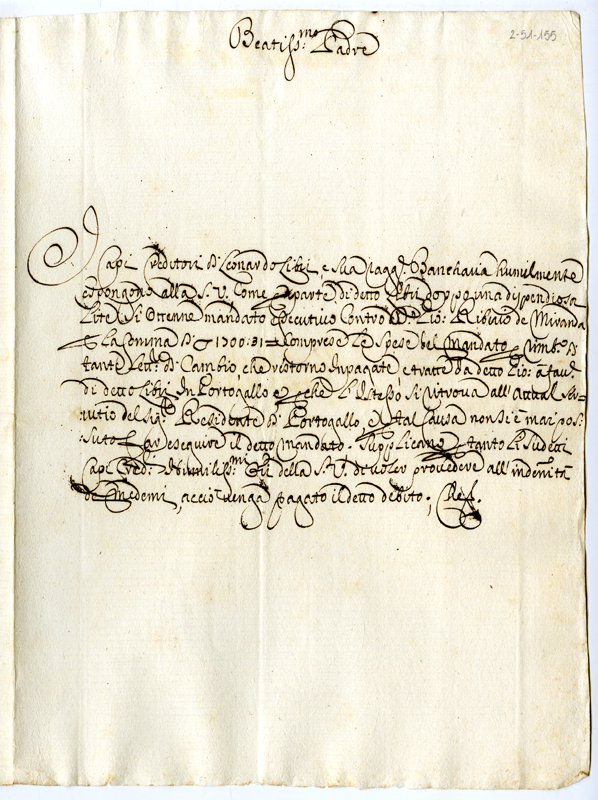 Beatiss.mo Padre
2-51-155
I Capi Creditori di Leonardo Libri, e sua ragg.e Bancharia humilmente
espongono alla S. V. Come parte di detto Libri doppo una dispendiosa
Lite si ottenne mandato executivo Contro D. Gio: Ribiro de Miranda
La somma di 1200:81 Comprese Le spese del Mandato
tante di Cambio, che restorno inpagate, e tratte da detto Gio: a fau.re
di detto Libri in Portogallo e che L'istesso si ritroua all' attual ser-
uitio del Sig.r Residente di Portogallo, e tal causa non si è mai pos-
suto far eseguire il detto mandato. Supplicano tanto Li sudetti
Capi Cred.ri humiliss.mi della S. V. di uoler prouedere all' indennità
de Medemi, acciò uenga pagato il detto debito;